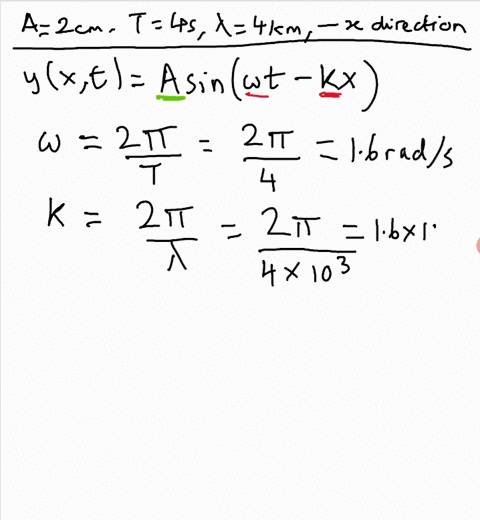 A=2cm. T=4ps, λ=4km, -x direction
y(x,t)= A sin(ωt - Kx)
ω = 2π/T = 2π/4 = 1.6 rad/s
K = 2π/λ = 2π/4×10³ = 1.6×1